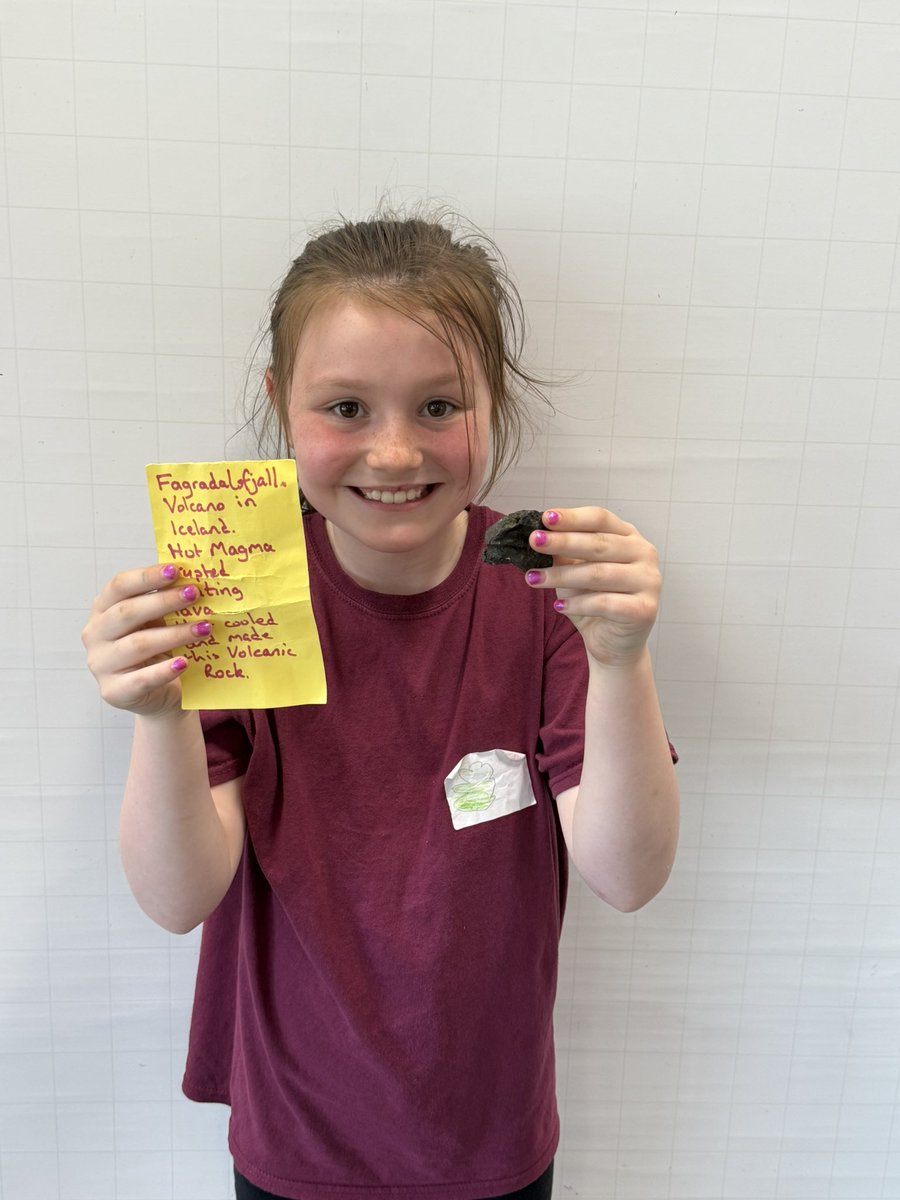 Fagradalsfjall.
Volcano in
Iceland.
Hot Magma
cooled
and made
this Volcanic
Rock.